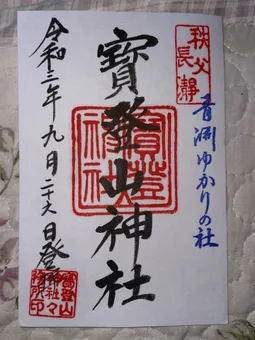 秩父
長瀞
青淵ゆかりの社
寳登山神社
寳登山神社
令和三年九月二十六日登拝
寳登山
神社々
務所印